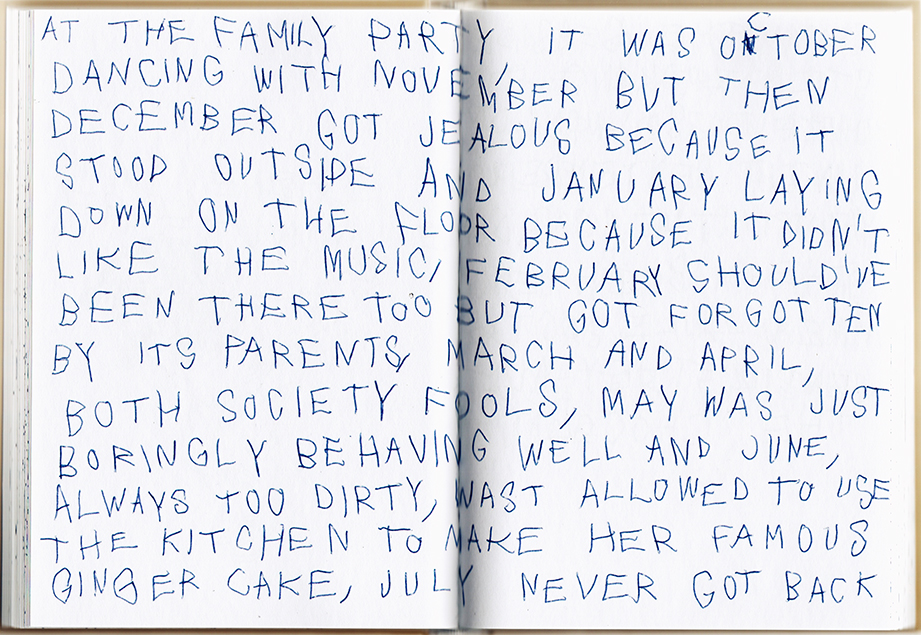 AT THE FAMILY PARTY, IT WAS OCTOBER
DANCING WITH NOVEMBER BUT THEN
DECEMBER GOT JEALOUS BECAUSE IT
STOOD OUTSIDE AND JANUARY LAYING
DOWN ON THE FLOOR BECAUSE IT DIDN'T
LIKE THE MUSIC, FEBRUARY SHOULD'VE
BEEN THERE TOO BUT GOT FORGOTTEN
BY ITS PARENTS, MARCH AND APRIL,
BOTH SOCIETY FOOLS, MAY WAS JUST
BORINGLY BEHAVING WELL AND JUNE,
ALWAYS TOO DIRTY, WAST ALLOWED TO USE
THE KITCHEN TO MAKE HER FAMOUS
GINGER CAKE, JULY NEVER GOT BACK